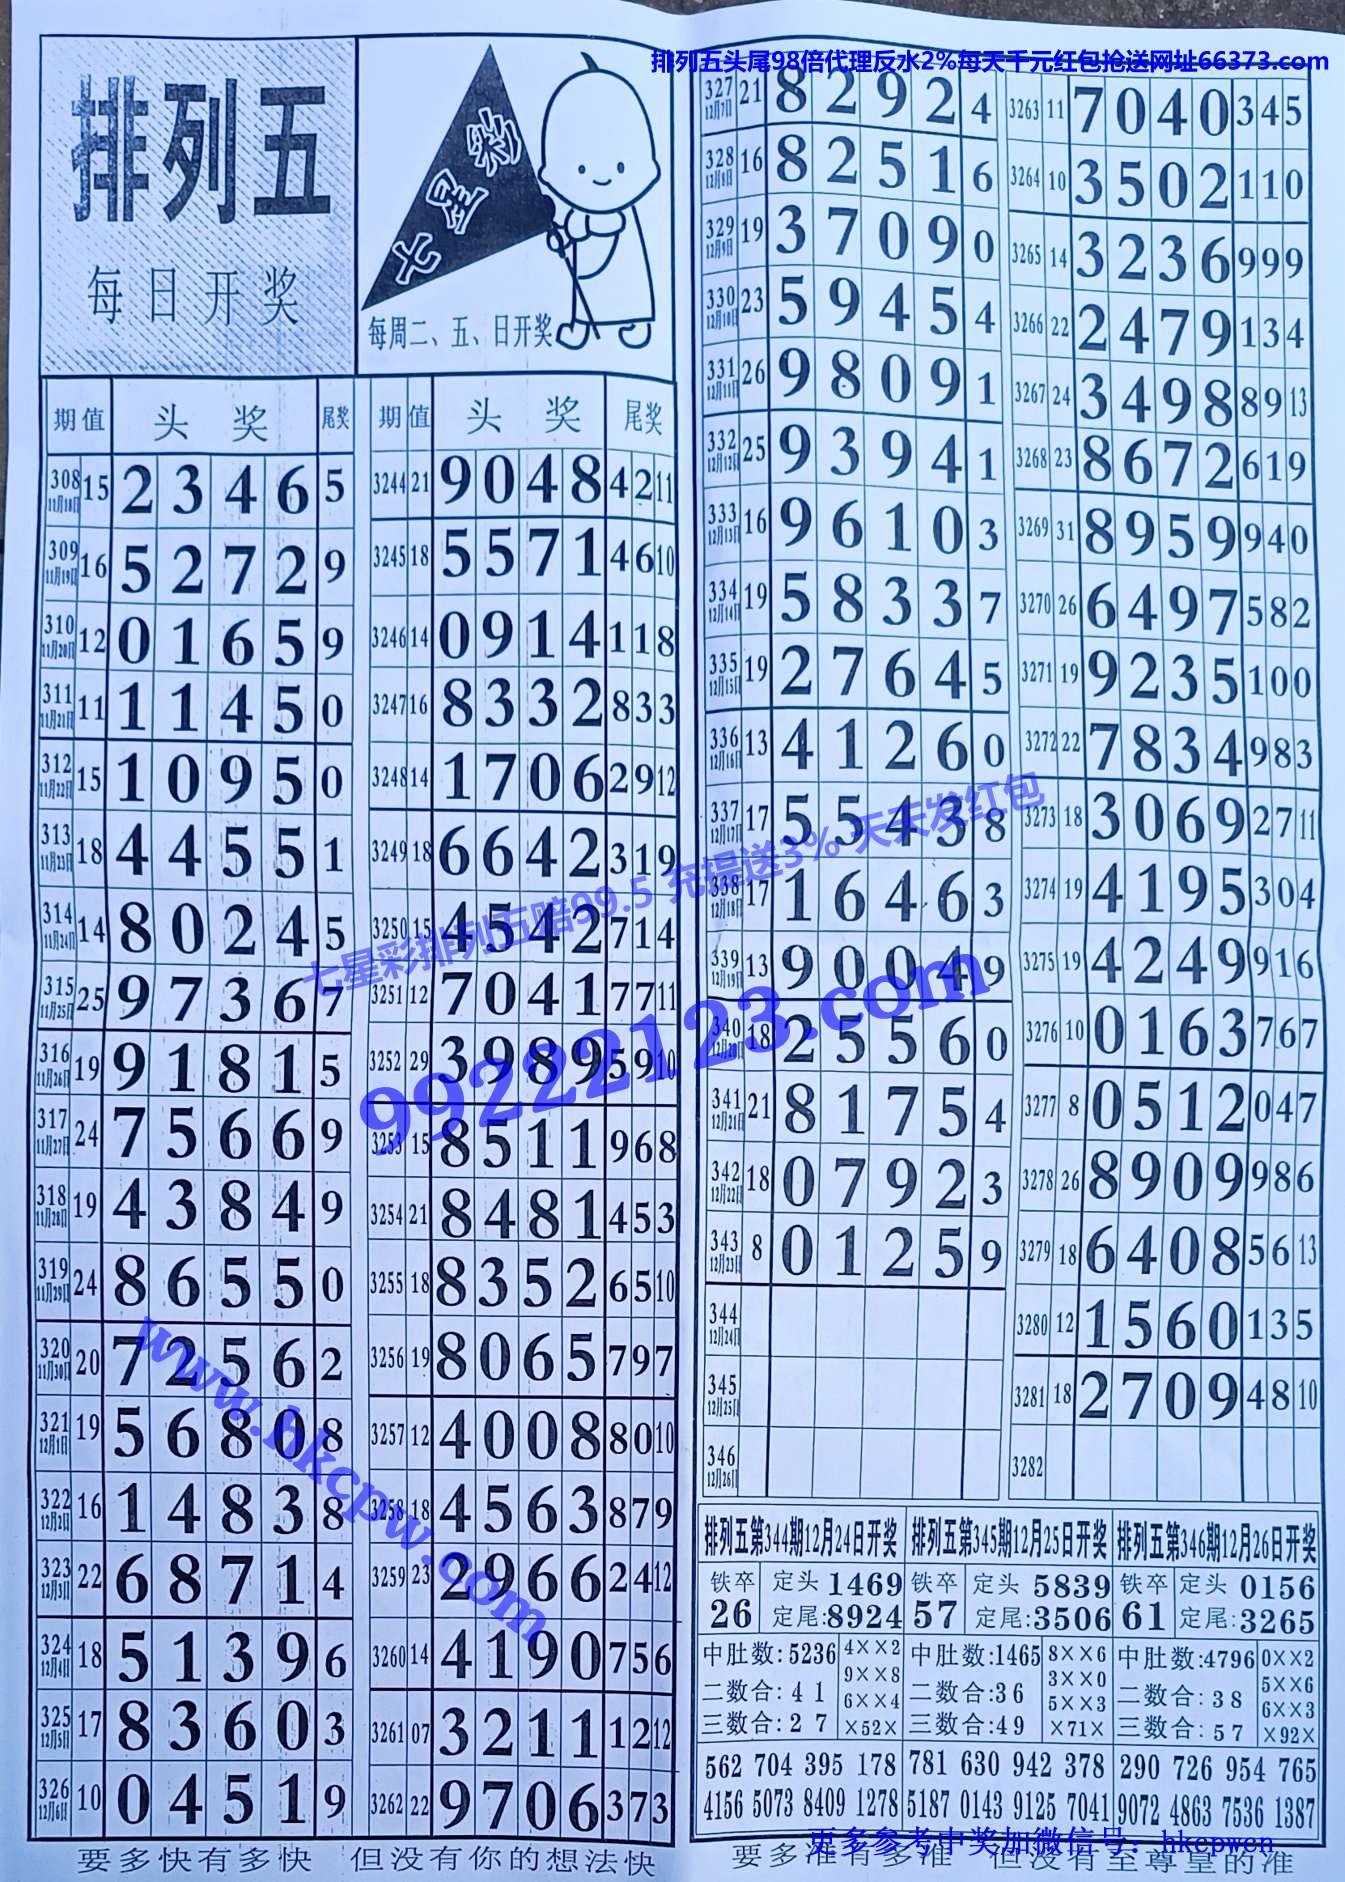 排列五头尾98倍代理反水2%每天千元红包抢送网址66373.com
排列五
每日开奖
七星彩
每周二、五、日开奖
期 值 头 奖 尾奖
308 11月18日 15 2 3 4 6 5
309 11月19日 16 5 2 7 2 9
310 11月20日 12 0 1 6 5 9
311 11月21日 11 1 1 4 5 0
312 11月22日 15 1 0 9 5 0
313 11月23日 18 4 4 5 5 1
314 11月24日 14 8 0 2 4 5
315 11月25日 25 9 7 3 6 7
316 11月26日 19 9 1 8 1 5
317 11月27日 24 7 5 6 6 9
318 11月28日 19 4 3 8 4 9
319 11月29日 24 8 6 5 5 0
320 11月30日 20 7 2 5 6 2
321 12月1日 19 5 6 8 0 8
322 12月2日 16 1 4 8 3 8
323 12月3日 22 6 8 7 1 4
324 12月4日 18 5 1 3 9 6
325 12月5日 17 8 3 6 0 3
326 12月6日 10 0 4 5 1 9
期 值 头 奖 尾奖
3244 21 9 0 4 8 4 2 11
3245 18 5 5 7 1 4 6 10
3246 14 0 9 1 4 1 1 8
3247 16 8 3 3 2 8 3 3
3248 14 1 7 0 6 2 9 12
3249 18 6 6 4 2 3 1 9
3250 15 4 5 4 2 7 1 4
3251 12 7 0 4 1 7 7 11
3252 29 3 9 8 9 5 9 10
3253 15 8 5 1 1 9 6 8
3254 21 8 4 8 1 4 5 3
3255 18 8 3 5 2 6 5 10
3256 19 8 0 6 5 7 9 7
3257 12 4 0 0 8 8 0 10
3258 18 4 5 6 3 8 7 9
3259 23 2 9 6 6 2 4 12
3260 14 4 1 9 0 7 5 6
3261 07 3 2 1 1 1 2 12
3262 22 9 7 0 6 3 7 3
327 12月7日 21 8 2 9 2 4
328 12月8日 16 8 2 5 1 6
329 12月9日 19 3 7 0 9 0
330 12月10日 23 5 9 4 5 4
331 12月11日 26 9 8 0 9 1
332 12月12日 25 9 3 9 4 1
333 12月13日 16 9 6 1 0 3
334 12月14日 19 5 8 3 3 7
335 12月15日 19 2 7 6 4 5
336 12月16日 13 4 1 2 6 0
337 12月17日 17 5 5 4 3 8
338 12月18日 17 1 6 4 6 3
339 12月19日 13 9 0 0 4 9
340 12月20日 18 2 5 5 6 0
341 12月21日 21 8 1 7 5 4
342 12月22日 18 0 7 9 2 3
343 12月23日 8 0 1 2 5 9
344 12月24日
345 12月25日
346 12月26日
3263 11 7 0 4 0 3 4 5
3264 10 3 5 0 2 1 1 0
3265 14 3 2 3 6 9 9 9
3266 22 2 4 7 9 1 3 4
3267 24 3 4 9 8 8 9 13
3268 23 8 6 7 2 6 1 9
3269 31 8 9 5 9 9 4 0
3270 26 6 4 9 7 5 8 2
3271 19 9 2 3 5 1 0 0
3272 22 7 8 3 4 9 8 3
3273 18 3 0 6 9 2 7 11
3274 19 4 1 9 5 3 0 4
3275 19 4 2 4 9 9 1 6
3276 10 0 1 6 3 7 6 7
3277 8 0 5 1 2 0 4 7
3278 26 8 9 0 9 9 8 6
3279 18 6 4 0 8 5 6 13
3280 12 1 5 6 0 1 3 5
3281 18 2 7 0 9 4 8 10
3282
排列五第344期12月24日开奖
铁卒 26 定头 1469
定尾:8924
中肚数:5236
二数合: 4 1
三数合: 2 7
4××2
9××8
6××4
×52×
562 704 395 178
4156 5073 8409 1278
排列五第345期12月25日开奖
铁卒 57 定头 5839
定尾:3506
中肚数:1465
二数合:36
三数合:49
8××6
3××0
5××3
×71×
781 630 942 378
5187 0143 9125 7041
排列五第346期12月26日开奖
铁卒 61 定头 0156
定尾:3265
中肚数:4796
二数合: 38
三数合: 57
0××2
5××6
6××3
×92×
290 726 954 765
9072 4863 7536 1387
要多快有多快 但没有你的想法快
要多准有多准 但没有至尊皇的准
七星彩排列五赔99.5 充提送3% 天天发红包
99222123.com
www.hkcpw.com
更多参考中奖加微信号：hkcpwcn